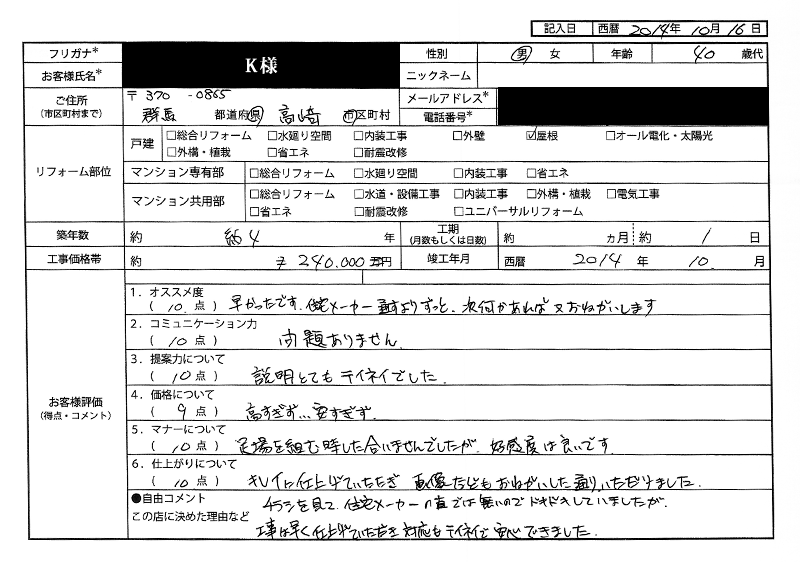 記入日 西暦 2014年 10月 16日
フリガナ* 性別 男 女 年齢 40 歳代
お客様氏名* K様 ニックネーム
ご住所 〒370-0865 メールアドレス*
(市区町村まで) 群馬 都道府県 高崎 市区町村 電話番号*
リフォーム部位
戸建 □総合リフォーム □水廻り空間 □内装工事 □外壁 ☑屋根 □オール電化・太陽光
□外構・植栽 □省エネ □耐震改修
マンション専有部 □総合リフォーム □水廻り空間 □内装工事 □省エネ
マンション共用部 □総合リフォーム □水道・設備工事 □内装工事 □外構・植栽 □電気工事
□省エネ □耐震改修 □ユニバーサルリフォーム
築年数 約 約4 年 工期 (月数もしくは日数) 約 ヵ月 約 1 日
工事価格帯 約 240.000 万円 竣工年月 西暦 2014 年 10. 月
お客様評価
(得点・コメント)
1．オススメ度
( 10. 点 ) 早かったです。住宅メーカー通すよりずっと、次何かあれば又おねがいします
2．コミュニケーション力
( 10 点 ) 問題ありません.
3．提案力について
( 10 点 ) 説明とてもテイネイでした.
4．価格について
( 9 点 ) 高すぎず… 安すぎず.
5．マナーについて
( 10 点 ) 足場を組む時した合いませんでしたが、好感度は良いです.
6．仕上がりについて
( 10 点 ) キレイに仕上げていただき おねがいした通り、いただけました.
●自由コメント
この店に決めた理由など
チラシを見て、住宅メーカーの直では無いのでドキドキしていましたが.
工事は早く仕上げていただき対応もテイネイで安心できました.